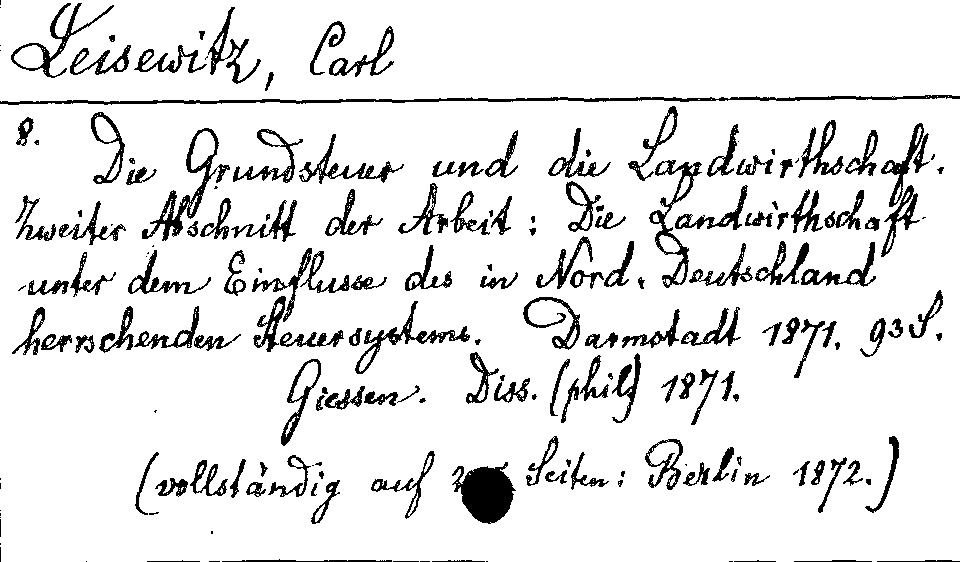 Leisewitz, Carl
8.
Die Grundsteuer und die Landwirthschaft.
Zweiter Abschnitt der Arbeit: Die Landwirthschaft
unter dem Einflusse des in Nord-Deutschland
herrschenden Steuersystems. Darmstadt 1871. 93 S.
Giessen. Diss. (phil) 1871.
(vollständig auf Seiten: Berlin 1872.)